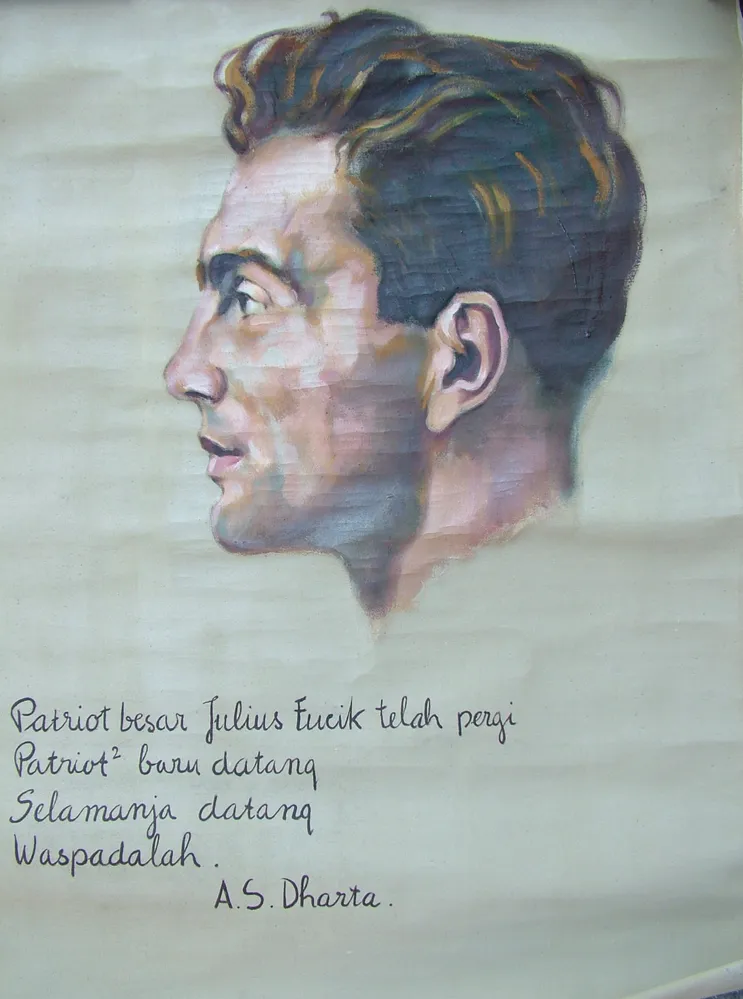 Patriot besar Julius Fucik telah pergi
Patriot² baru datang
Selamanja datang
Waspadalah .
A.S. Dharta .